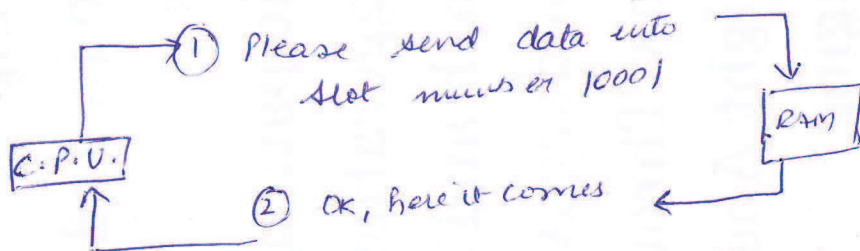 ① Please send data into
slot number 10001
RAM
C.P.U.
② OK, here it comes